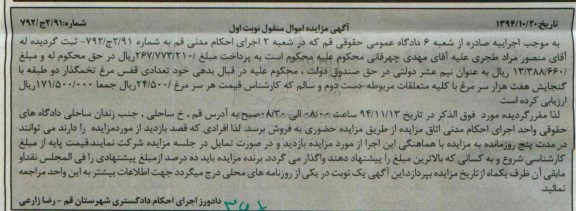 تاریخ:۱۳۹۴/۱۰/۲۰
آگهی مزایده اموال منقول نوبت اول
شماره:۲/۹۱ج/۷۹۲
به موجب اجراییه صادره از شعبه ۶ دادگاه عمومی حقوقی قم که در شعبه ۲ اجرای احکام مدنی قم به شماره ۲/۹۱ج/۷۹۲- ثبت گردیده له
آقای منصور مراد طجری علیه آقای مهدی چهرقانی محکوم علیه محکوم است به پرداخت مبلغ /۲۶۷/۷۷۳/۲۱۰ریال در حق محکوم له و مبلغ
/۱۳/۳۸۸/۶۶۰ ریال به عنوان نیم عشر دولتی در حق صندوق دولت ، محکوم علیه در قبال بدهی خود تعدادی قفس مرغ تخمگذار دو طبقه با
گنجایش هفت هزار سر مرغ با کلیه متعلقات مربوطه-دست دوم و سالم که کارشناس قیمت هر سر مرغ /۲۴/۵۰۰ریال جمعا /۱۷۱/۵۰۰/۰۰۰ریال
ارزیابی کرده است
لذا مقررگردیده مورد فوق الذکر در تاریخ ۹۴/۱۱/۱۳ ساعت ۰۸/۰۰ الی ۰۸/۳۰صبح به آدرس قم ، خ ساحلی ، جنب زندان ساحلی دادگاه های
حقوقی واحد اجرای احکام مدنی اتاق مزایده از طریق مزایده حضوری به فروش برسد. لذا افرادی که قصد بازدید از موردمزایده را دارند می توانند
در مدت پنج روزمانده به مزایده با هماهنگی این اجرا از مورد مزایده بازدید و در صورت تمایل در جلسه مزایده شرکت نمایند.قیمت پایه از مبلغ
کارشناسی شروع و به کسانی که بالاترین مبلغ را پیشنهاد دهند واگذار می گردد. برنده مزایده باید ده درصد ازمبلغ پیشنهادی را فی المجلس نقداو
مابقی آن ظرف یکماه ازتاریخ مزایده بپردازد.این آگهی یک نوبت در یکی از روزنامه های محلی درج میگردد جهت اطلاعات بیشتر به این واحد مراجعه
نمائید.
دادورز اجرای احکام دادگستری شهرستان قم - رضا زارعی